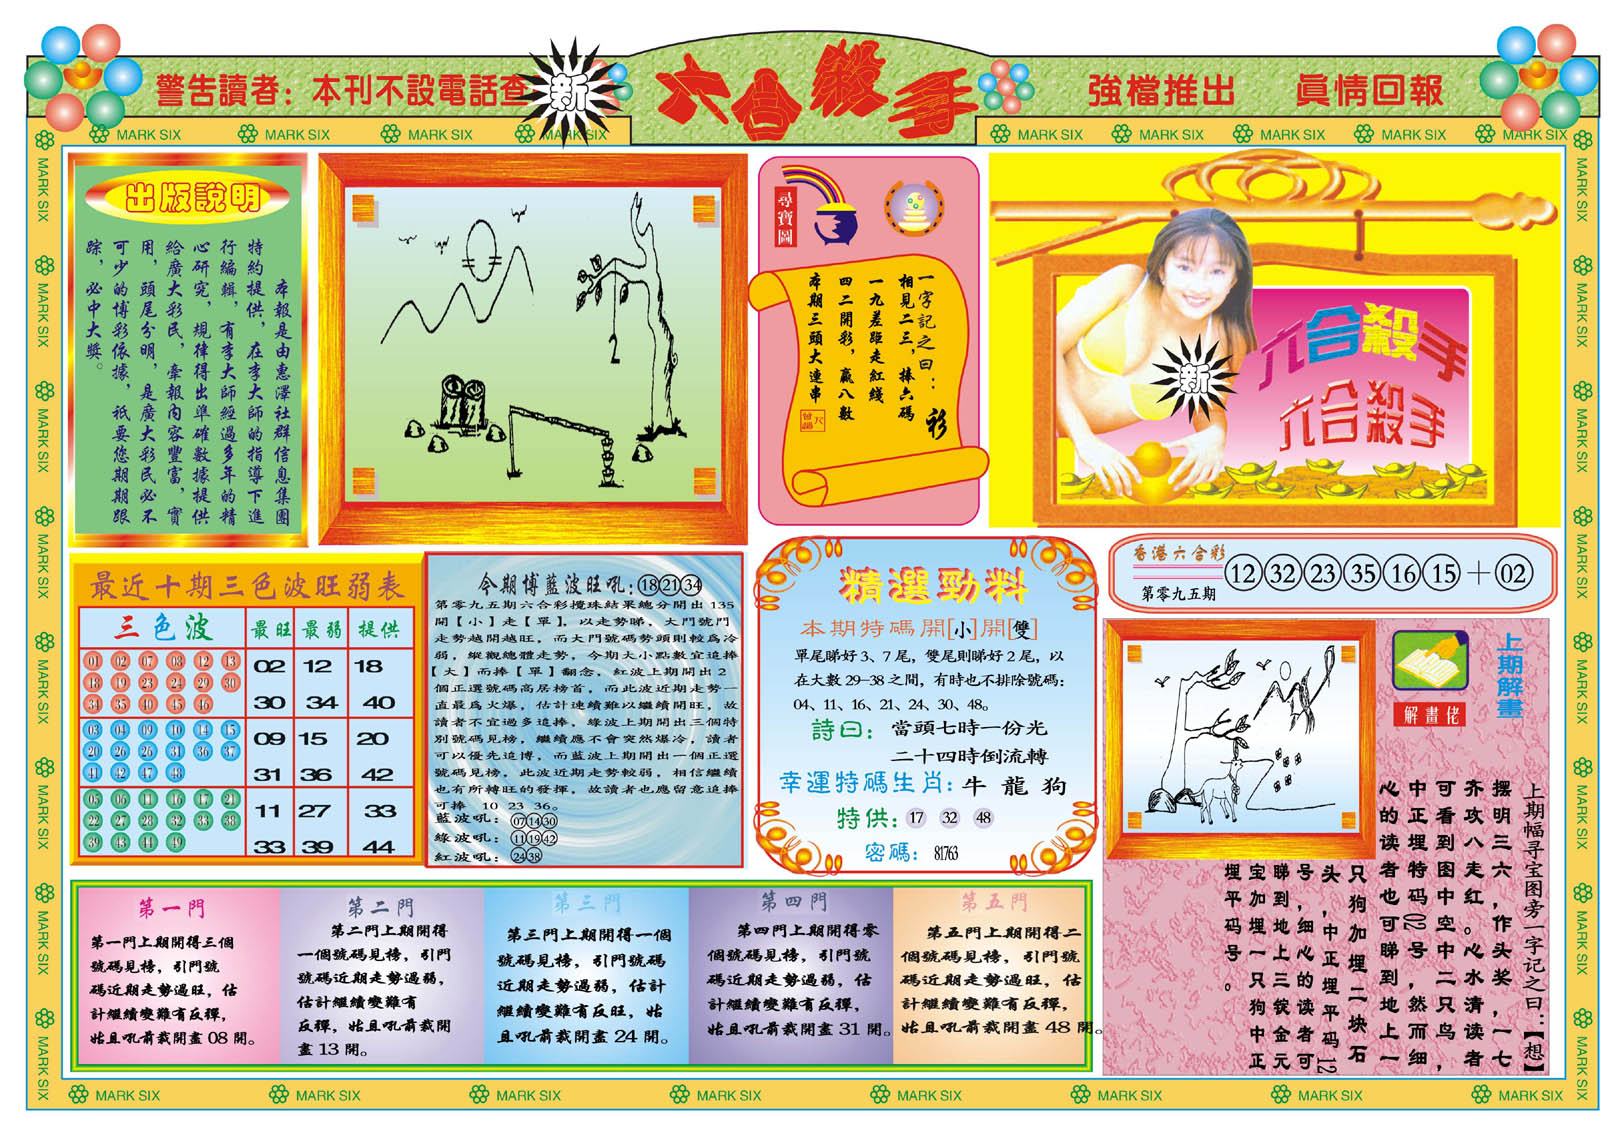 警告讀者：本刊不設電話查
新
六合殺手
強檔推出 眞情回報
MARK SIX MARK SIX MARK SIX MARK SIX MARK SIX MARK SIX MARK SIX MARK SIX MARK SIX
出版說明
本報是由惠澤社群信息集團
特約提供，在李大師的指導下進
行編輯，有李大師經過多年的精
心研究，規律得出準確數據提供
給廣大彩民，牽報內容豐富，實
用，頭尾分明，是廣大彩民必不
可少的博彩依據，祇要您期期跟
踪，必中大獎。
尋寶圖
一字記之曰：衫
相見二三，捧六碼
一九差距走紅綫
四二開彩，贏八數
本期三頭大連串
六合殺手
六合殺手
新
香港六合彩
第零九五期
12 32 23 35 16 15 + 02
最近十期三色波旺弱表
三色波 最旺 最弱 提供
01 02 07 08 12 13
18 19 23 24 29 30
34 35 40 45 46
02 12 18
30 34 40
03 04 09 10 14 15
20 26 25 31 36 37
41 42 47 48
09 15 20
31 36 42
05 06 11 16 17 21
22 27 28 32 33 38
39 43 44 49
11 27 33
33 39 44
今期博藍波旺吼：18 21 34
第零九五期六合彩攪珠結果總分開出 135
開【小】走【單】，以走勢睇，大門號門
走勢越開越旺，而大門號碼勢頭則較爲冷
弱，縱觀總體走勢，今期大小點數宜追捧
【大】而捧【單】翻念，紅波上期開出 2
個正選號碼高居榜首，而此波近期走勢一
直最爲火爆，估計連續難以繼續開旺，故
讀者不宜過多追捧，綠波上期開出三個特
別號碼見榜，繼續應不會突然爆冷，讀者
可以優先追博，而藍波上期開出一個正選
號碼見榜，此波近期走勢較弱，相信繼續
也有所轉旺的發揮，故讀者也應留意追捧
可捧 10 23 36。
藍波吼：07 14 30
綠波吼：11 19 42
紅波吼：24 38
精選勁料
本期特碼開[小]開[雙]
單尾睇好 3、7 尾，雙尾則睇好 2 尾，以
在大數 29—38 之間，有時也不排除號碼：
04、11、16、21、24、30、48。
詩曰：當頭七時一份光
二十四時倒流轉
幸運特碼生肖：牛 龍 狗
特供：17 32 48
密碼：81763
上期解畫
解畫佬
上期幅寻宝图旁一字记之曰：【想】
摆明三六，作头奖，一七
齐攻八走红。心水清读者
可看到图中空中二只鸟，
中正埋特码02号，然而细
心的读者也可睇到地上一
只狗加埋二块石
头，中正埋平码12
号，细心的读者可
睇到地上三锭金元
宝加埋一只狗中正
埋平码号。
第一門
第一門上期開得三個
號碼見榜，引門號
碼近期走勢過旺，估
計繼續變難有反彈，
姑且吼前裁開畫 08 開。
第二門
第二門上期開得
一個號碼見榜，引門
號碼近期走勢過弱，
估計繼續變難有
反彈，姑且吼前裁開
畫 13 開。
第三門
第三門上期開得一個
號碼見榜，引門號碼
近期走勢過弱，估計
繼續變難有反旺，姑
且吼前裁開畫 24 開。
第四門
第四門上期開得零
個號碼見榜，引門號
碼近期走勢過弱，估
計繼續變難有反彈，
姑且吼前裁開畫 31 開。
第五門
第五門上期開得二
個號碼見榜，引門號
碼近期走勢過弱，估
計繼續變難有反彈，
姑且吼前裁開畫 48 開。
MARK SIX MARK SIX MARK SIX MARK SIX MARK SIX MARK SIX MARK SIX MARK SIX